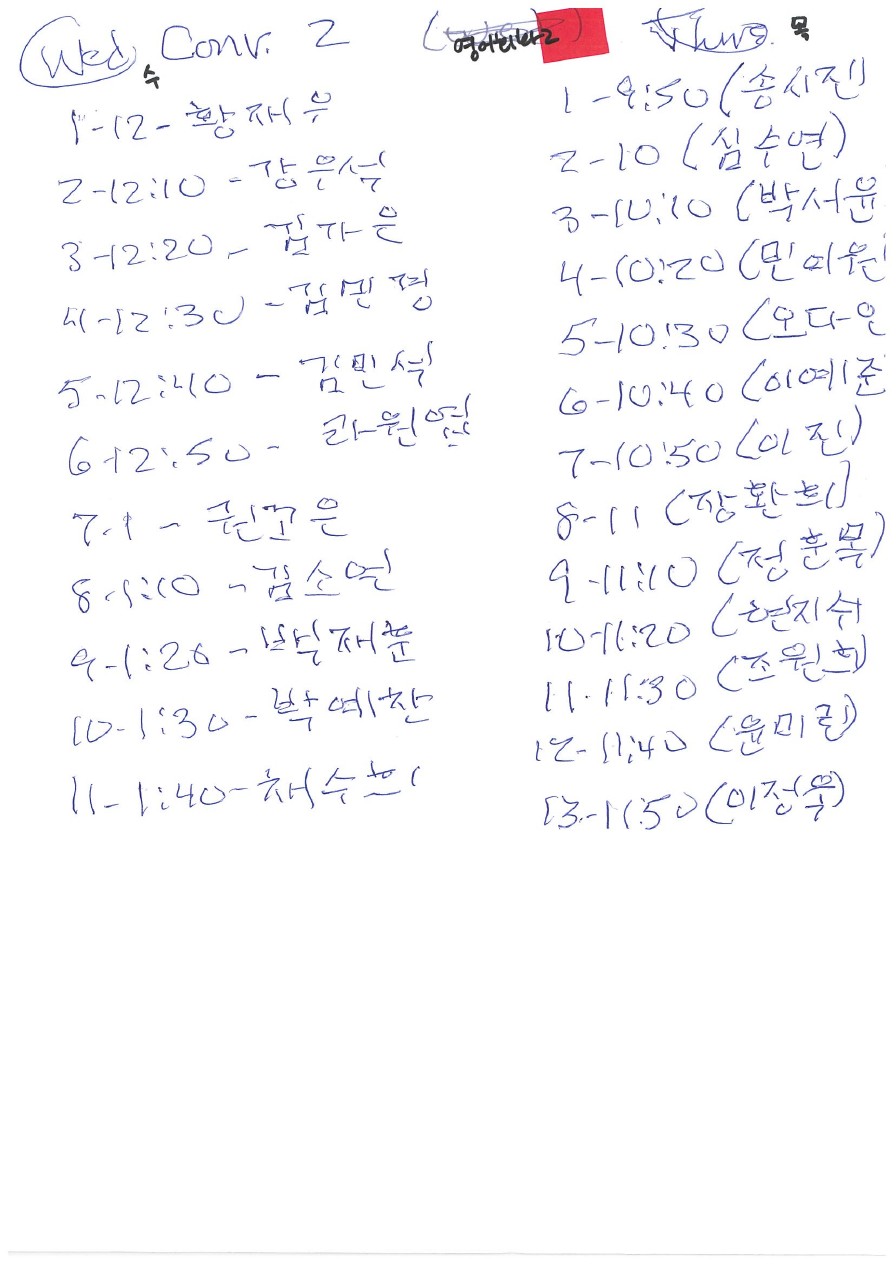 Wed 수 Conv. 2 (영어회화2) Thurs. 목
1-12-황재우
2-12:10 -강은석
3-12:20 - 김가은
4-12:30 -김민경
5-12:40 - 김민석
6-12:50 - 라원
7-1 - 권조은
8-1:10 -김소연
9-1:20 -박재훈
10-1:30 -박예찬
11-1:40-채수희
1-9:50 (송시진)
2-10 (심수연)
3-10:10 (박서윤
4-10:20 (민여원
5-10:30 (오다인
6-10:40 (이예준
7-10:50 (이진)
8-11 (장환희)
9-11:10 (정훈목)
10-11:20 (현지쉬
11-11:30 (조원희)
12-11:40 (윤미림)
13-11:50 (이정욱)